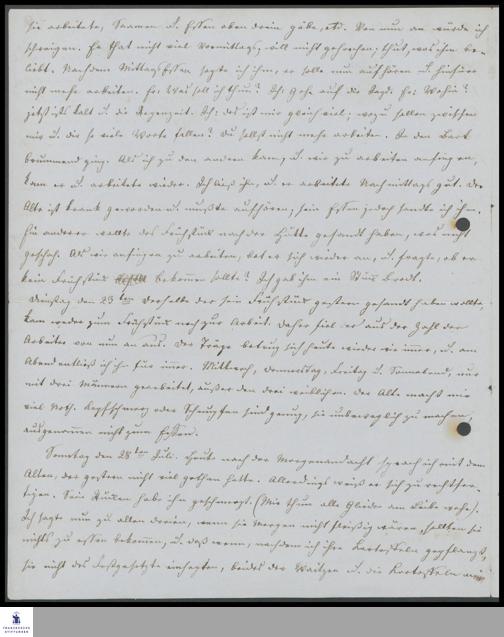 sie arbeitete, Samen u. Essen oben drein gäbe, etc. Von nun an würde ich
schweigen. Er that nicht viel Vormittags, will nicht gehorchen, thut, was ihm be-
liebt. Nachdem Mittagessen sagte ich ihm, er solle nun aufhören u. hinfüro
nicht mehr arbeiten. Er: Was soll ich thun? Ich: Gehe auf die Jagd. Er: Wohin?
jetzt ists kalt u. die Regenzeit. Ich: das ist mir gleich viel; wozu sollen zwischen
mir u. dir so viele Worte fallen? Du sollst nicht mehr arbeiten. In den Bart
brummend ging. Als ich zu den andern kam, u. wir zu arbeiten anfingen,
kam er u. arbeitete wieder. Ich ließ ihn, u. er arbeitete Nachmittags gut. Der
Alte ist krank geworden u. mußte aufhören; sein Essen jedoch sandte ich ihm.
Ein anderer wollte das Frühstück nach der Hütte gesandt haben, was nicht
geschah. Als wir anfingen zu arbeiten, bot er sich wieder an, u. fragte, ob er
kein Frühstück bekommen sollte? Ich gab ihm ein Stück Brodt.
Dienstag den 23ten Derselbe der sein Frühstück gestern gesandt haben wollte,
kam weder zum Frühstück noch zur Arbeit. Daher fiel er aus der Zahl der
Arbeiter von nun an aus. Der Träge betrug sich heute wieder wie immer, u. am
Abend entließ ich ihn für immer. Mittwoch, Donnerstag, Freitag u. Sonnabend, nur
mit drei Männern gearbeitet, außer den drei weiblichen. Der Alte macht mir
viel Noth. Kopfschmerz oder Schnupfen sind genug, sie unbeweglich zu machen,
ausgenommen nicht zum Essen.
Sonntag den 28ten Juli. Heute nach der Morgenandacht sprach ich mit dem
Alten, der gestern nicht viel gethan hatte. Allerdings weiß er sich zu rechtfer-
tigen. Sein Rücken habe ihn geschmerzt. (Mir thun alle Glieder am Leibe wehe).
Ich sagte nun zu allen dreien, wenn sie Morgen nicht fleißig wären, sollten sie
nichts zu essen bekommen, u. daß wenn, nachdem ich ihre Kartoffeln gepflanzt,
sie nicht das Festgesetzte einhegten, beides der Waitzen u. die Kartoffeln mein
FRANCKESCHE STIFTUNGEN